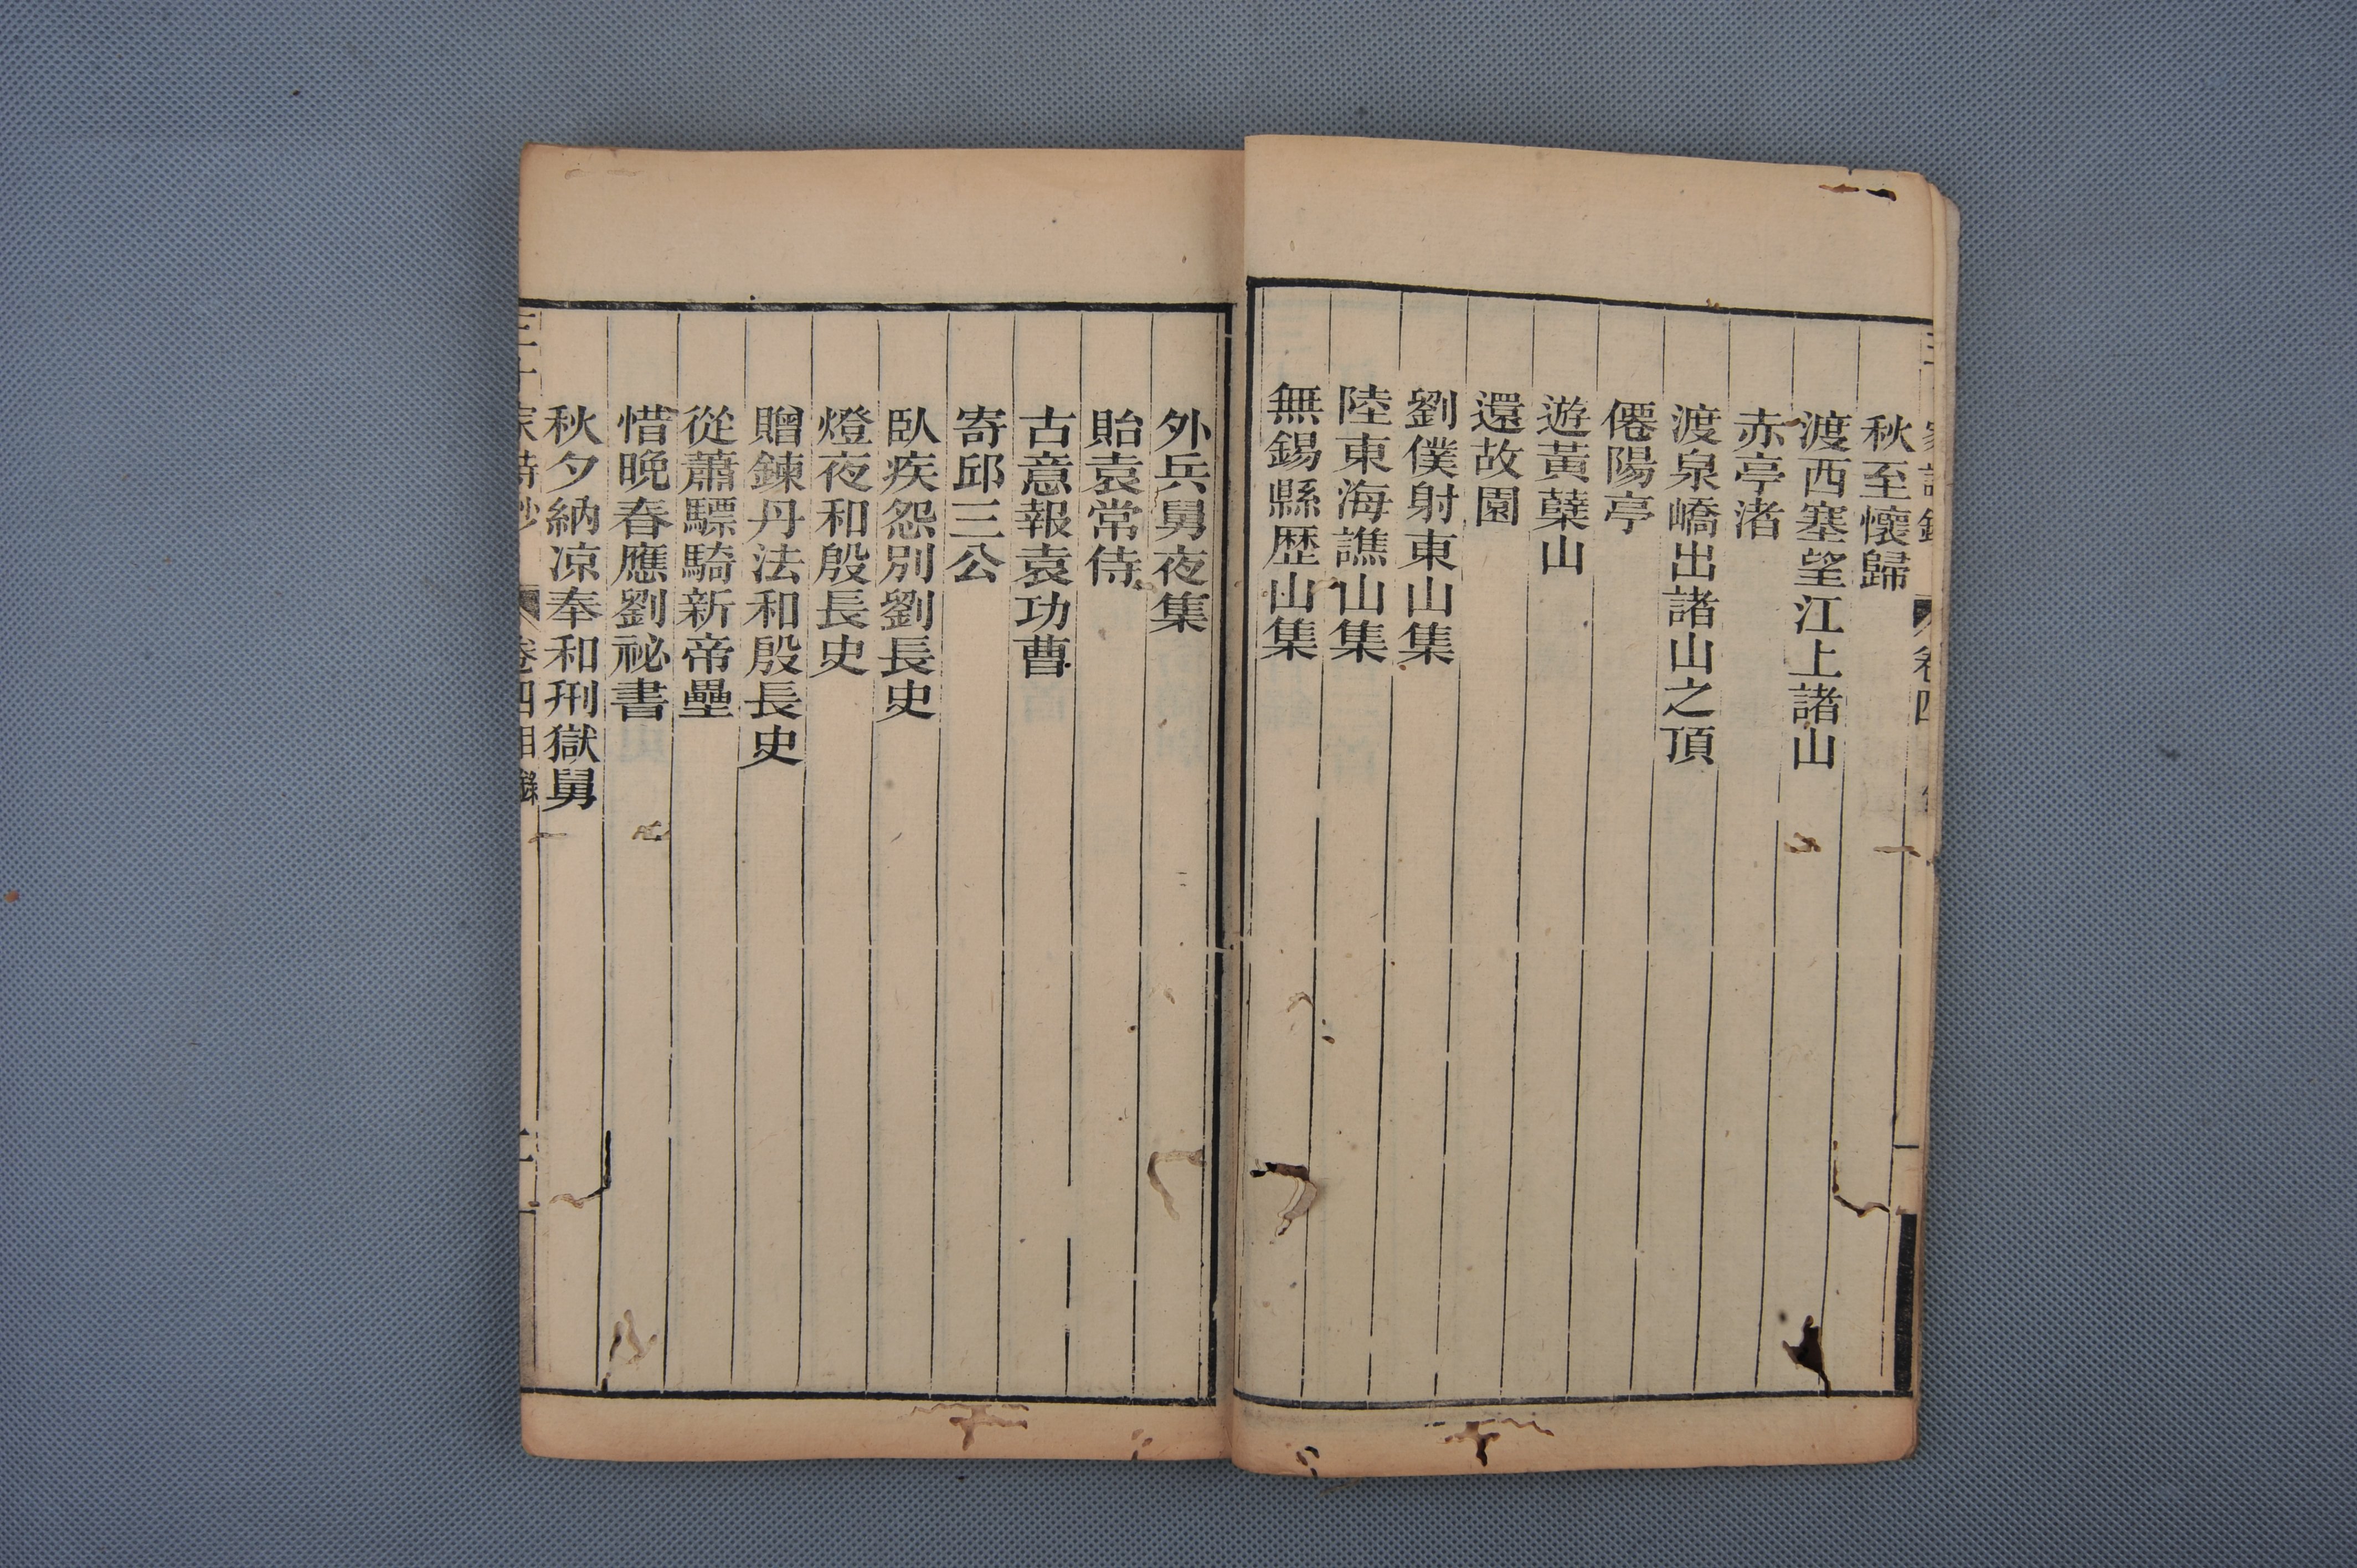 秋至懷歸
渡西塞望江上諸山
赤亭渚
渡泉嶠出諸山之頂
僊陽亭
遊黃蘗山
還故園
劉僕射東山集
陸東海譙山集
無錫縣歷山集
外兵舅夜集
貽袁常侍
古意報袁功曹
寄邱三公
臥疾怨別劉長史
燈夜和殷長史
贈鍊丹法和殷長史
從蕭驃騎新帝壘
惜晚春應劉祕書
秋夕納凉奉和刑獄舅
卷四目錄